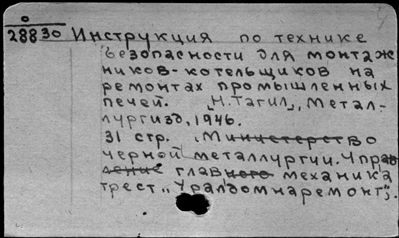 о
28830 Инструкция по технике
безопасности для монтаж
ников-котельщиков на
ремонтах промышленных
печей. Н.Тагил, Метал-
лургизд, 1946.
31 стр. (Министерство
черной металлургии. Управ
ление главного механика
трест „Уралдомнаремонт").